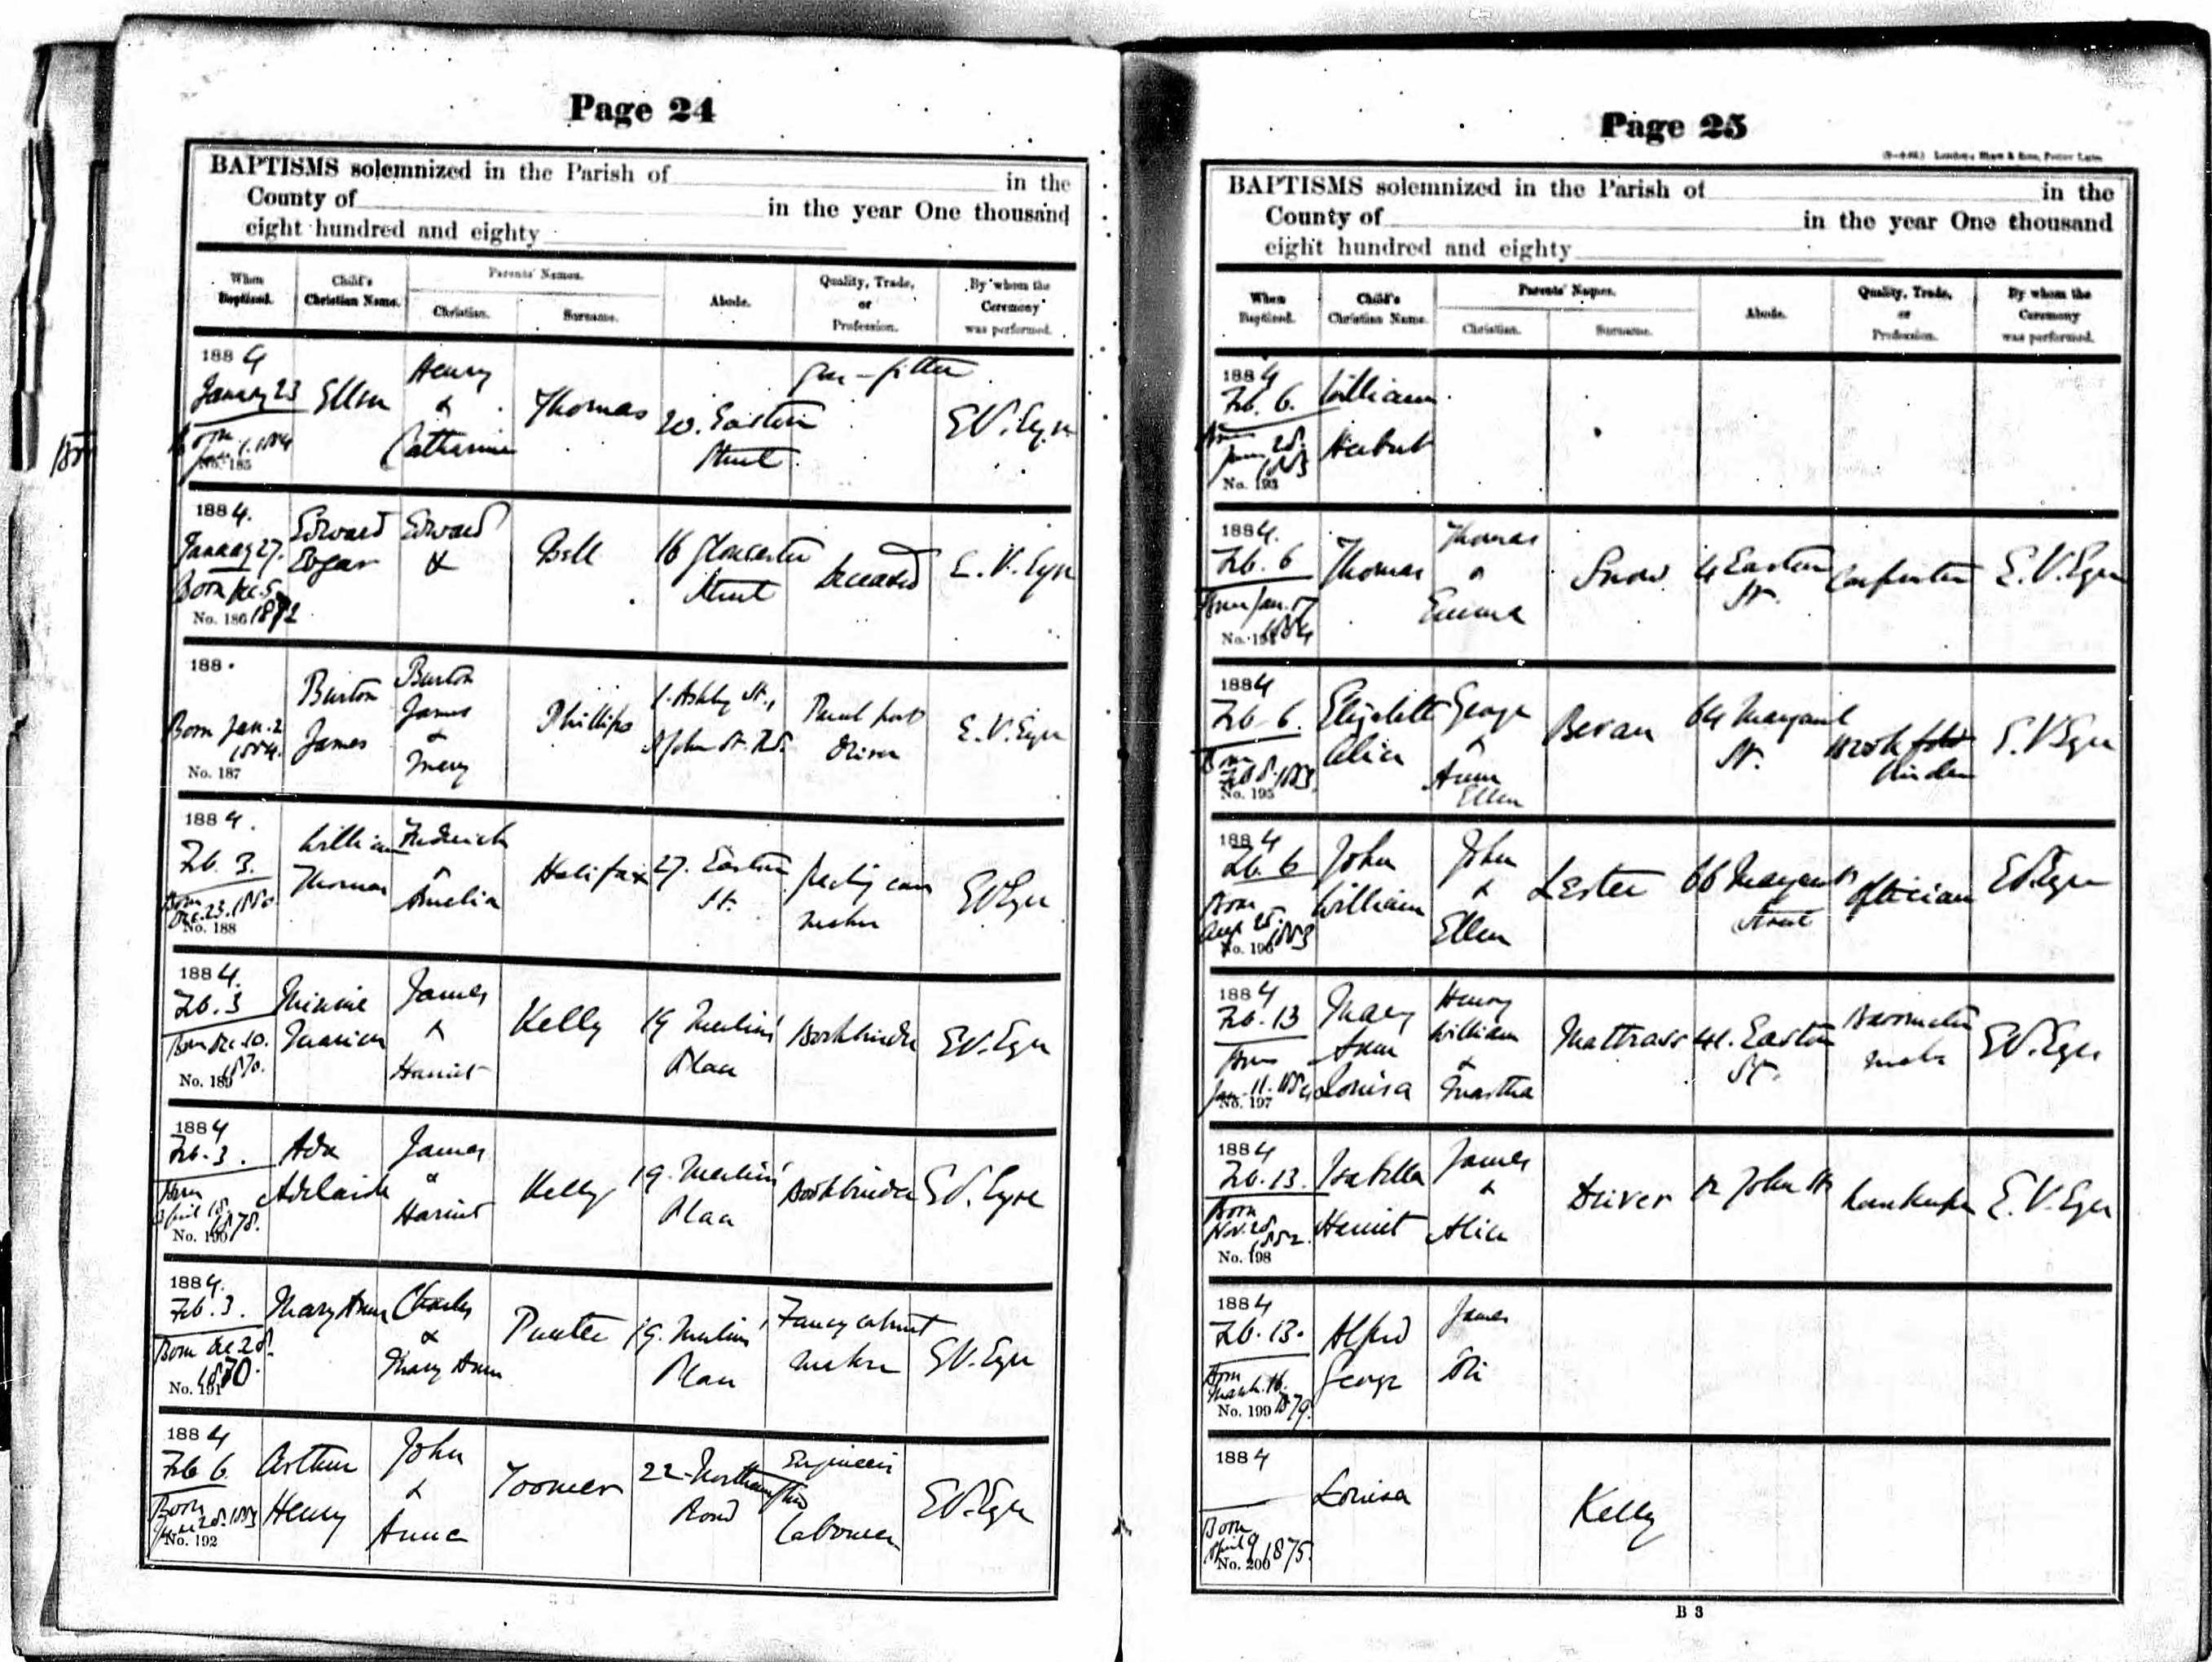 Page 24
BAPTISMS solemnized in the Parish of in the
County of in the year One thousand
eight hundred and eighty
When Baptized.
Child's Christian Name.
Parents' Names.
Christian.
Surname.
Abode.
Quality, Trade, or Profession.
By whom the Ceremony was performed.
1884
January 23
Born
1884
No. 185
Ellen
Henry
&
Catharine
Thomas
20. Easton
Street
Gas-fitter
E.V. Eyre
1884.
January 27.
Born Dec 5
1882
No. 186
Edward
Edgar
Edward
&
Bell
16 Gloucester
Street
deceased
E. V. Eyre
188
Born Jan. 2
1884.
No. 187
Burton
James
Burton
James
&
Mary
Phillips
1. Ashby St.,
St John St. Rd.
Driver
E.V. Eyre
1884.
Feb. 3.
Born
Dec. 23. 1880
No. 188
William
Thomas
Frederick
&
Amelia
Halifax
27. Easton
St.
maker
E V Eyre
1884.
Feb. 3
Born Dec 10.
1870.
No. 189
Minnie
Marian
James
&
Harriet
Kelly
19 Merlin's
Place
Bookbinder
E.V. Eyre
1884
Feb. 3.
Born
April 18.
1878.
No. 190
Ada
Adelaide
James
&
Harriet
Kelly
19. Merlin's
Place
Bookbinder
E V. Eyre
1884.
Feb. 3.
Born Dec 28.
1870.
No. 191
Mary Ann
Charles
&
Mary Ann
Punter
19. Merlin's
Place
Fancy cabinet
maker
E V. Eyre
1884
Feb 6.
Born
June 28. 1883
No. 192
Arthur
Henry
John
&
Anna
Toomer
22 Northampton
Road
Engineer's
Labourer
E V. Eyre
Page 25
BAPTISMS solemnized in the Parish of in the
County of in the year One thousand
eight hundred and eighty
When Baptized.
Child's Christian Name.
Parents' Names.
Christian.
Surname.
Abode.
Quality, Trade, or Profession.
By whom the Ceremony was performed.
1884
Feb. 6.
Born
June 28.
1883
No. 193
William
Herbert
1884.
Feb. 6
Born Jan. 17
1884
No. 194
Thomas
Thomas
&
Emma
Snow
4 Easton
St.
Carpenter
E. V. Eyre
1884
Feb. 6.
Born
Feb 8. 1883
No. 195
Elizabeth
Alice
George
&
Anne
Ellen
Bevan
64 Margaret
St.
Book
Binder
E. V Eyre
1884
Feb. 6
Born
Aug 25.
1883
No. 196
John
William
John
&
Ellen
Lester
66 Margaret
Street
Optician
E V. Eyre
1884
Feb. 13
Born
Jan. 11. 1884
No. 197
Mary
Ann
Louisa
Henry
William
&
Martha
Mattrass
41. Easton
St.
Barometer
maker
E V. Eyre
1884
Feb. 13.
Born
Nov. 28
1882.
No. 198
Isabella
Harriet
James
&
Alice
Driver
John St
E. V. Eyre
1884
Feb. 13.
Born
March. 16.
1879.
No. 199
Alfred
George
James
1884
Born
April 9
1875.
No. 200
Louisa
Kelly
B 3